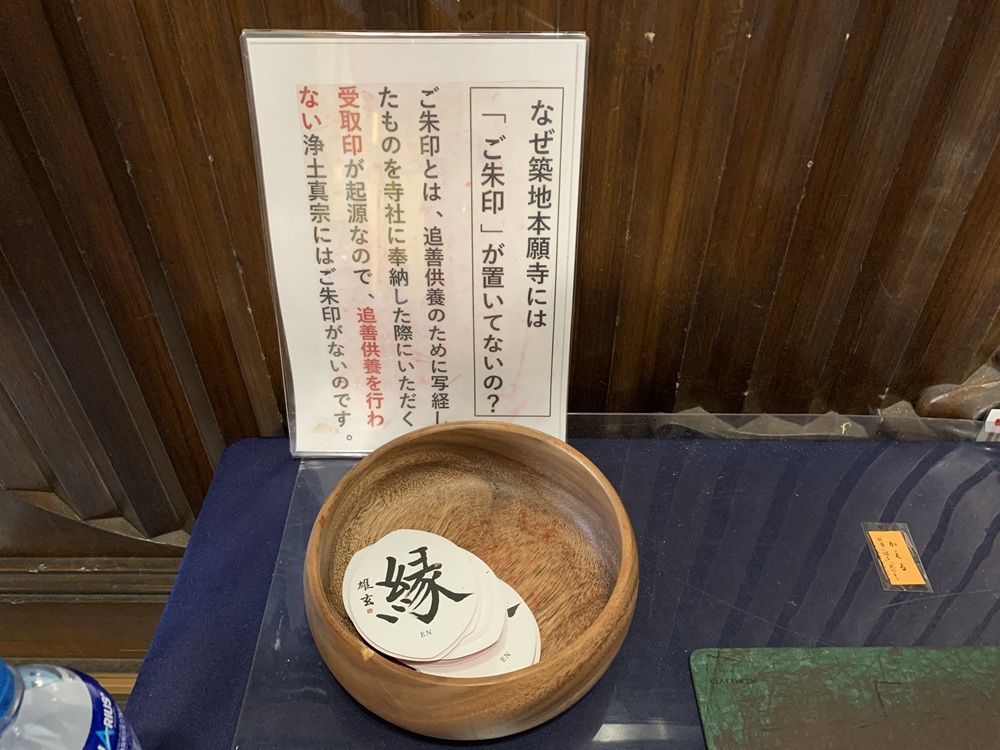 なぜ築地本願寺には
「ご朱印」が置いてないの？
ご朱印とは、追善供養のために写経し
たものを寺社に奉納した際にいただく
受取印が起源なので、追善供養を行わ
ない浄土真宗にはご朱印がないのです。
縁
雄玄
EN
EN
かえる